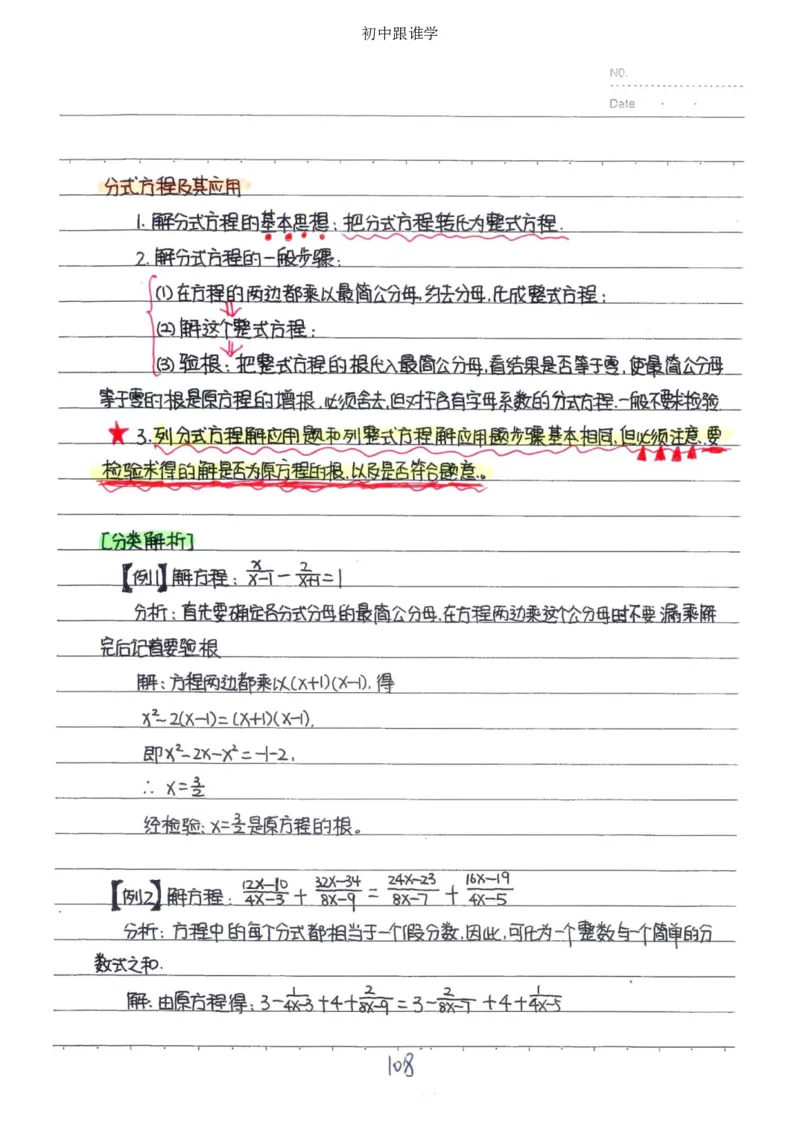 初中跟谁学
NO.
Date
分式方程及其应用
1. 解分式方程的基本思想：把分式方程转化为整式方程.
2. 解分式方程的一般步骤：
(1) 在方程的两边都乘以最简公分母,约去分母,化成整式方程；
(2) 解这个整式方程；
(3) 验根：把整式方程的根代入最简公分母,看结果是否等于零,使最简公分母
等于零的根是原方程的增根,必须舍去,但对于含有字母系数的分式方程,一般不要求检验
★ 3. 列分式方程解应用题和列整式方程解应用题步骤基本相同,但必须注意,要
检验求得的解是否为原方程的根,以及是否符合题意。
[分类解析]
【例1】解方程：x/(x-1) - 2/(x+1) = 1
分析：首先要确定各分式分母的最简公分母,在方程两边乘这个公分母时不要漏乘解
完后记着要验根
解：方程两边都乘以(x+1)(x-1),得
x²-2(x-1)=(x+1)(x-1),
即x²-2x-x²=-1-2,
∴ x=3/2
经检验：x=3/2是原方程的根。
【例2】解方程：(12x-10)/(4x-3) + (32x-34)/(8x-9) = (24x-23)/(8x-7) + (16x-19)/(4x-5)
分析：方程中的每个分式都相当于一个假分数,因此,可化为一个整数与一个简单的分
数式之和.
解:由原方程得：3-1/(4x-3)+4+2/(8x-9)=3-2/(8x-7)+4+1/(4x-5)
108